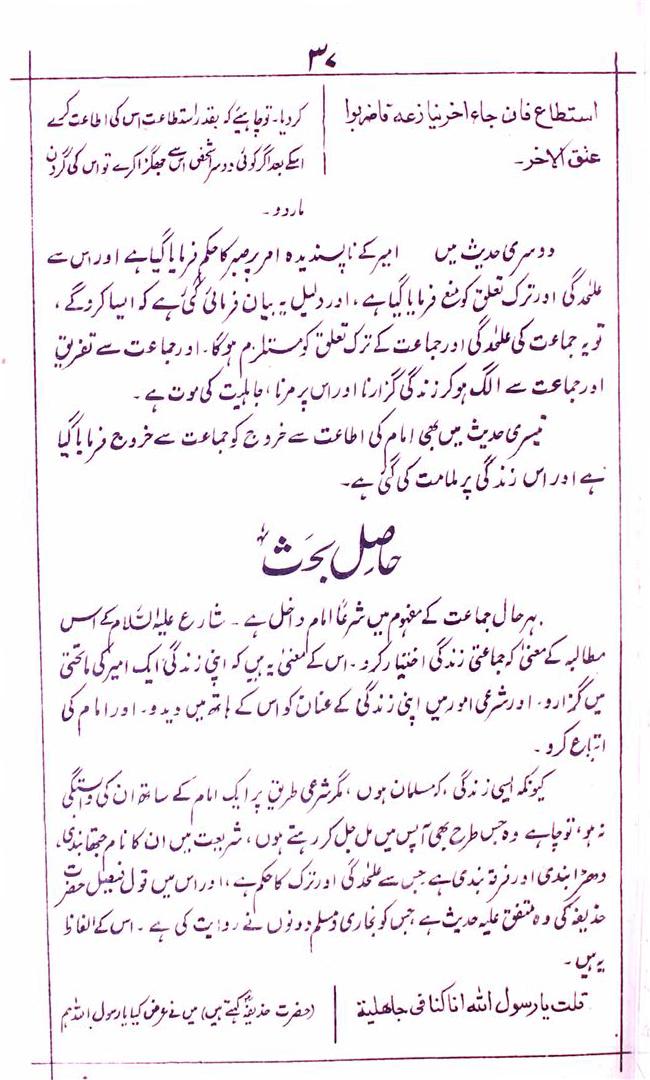 ۳۷
استطاع فان جاء اخر ینازعه فاضربوا
عنق الاخر۔
کردیا۔ تو چاہیئے کہ بقدر استطاعت اس کی اطاعت کرے
اسکے بعد اگر کوئی دوسرا شخص اس سے جھگڑا کرے تو اس کی گردن
مار دو۔
دوسری حدیث میں امیر کے ناپسندیدہ امر پر صبر کا حکم فرمایا گیا ہے اور اس سے
علٰحدگی اور ترک تعلق کو منع فرمایا گیا ہے، اور دلیل یہ بیان فرمائی گئی ہے کہ ایسا کروگے،
تو یہ جماعت کی علٰحدگی اور جماعت کے ترک تعلق کو مستلزم ہوگا۔ اور جماعت سے تفریق
اور جماعت سے الگ ہوکر زندگی گزارنا اور اس پر مرنا، جاہلیت کی موت ہے۔
تیسری حدیث میں بھی امام کی اطاعت سے خروج کو جماعت سے خروج فرمایا گیا
ہے اور اس زندگی پر ملامت کی گئی ہے۔
حاصل بحث
بہر حال جماعت کے مفہوم میں شرعًا امام داخل ہے۔ شارع علیہ السلام کے اس
مطالبہ کے معنیٰ کہ جماعتی زندگی اختیار کرو۔ اس کے معنیٰ یہ ہیں کہ اپنی زندگی ایک امیر کی ماتحتی
میں گزارو۔ اور شرعی امور میں اپنی زندگی کے عنان کو اس کے ہاتھ میں دیدو۔ اور امام کی
اتباع کرو۔
کیونکہ ایسی زندگی، کہ مسلمان ہوں، مگر شرعی طریق پر ایک امام کے ساتھ ان کی وابستگی
نہ ہو، تو چاہے وہ جس طرح بھی آپس میں مل جل کر رہتے ہوں، شریعت میں ان کا نام جتھا بندی،
دھڑا بندی اور فرقہ بندی ہے جس سے علٰحدگی اور ترک کا حکم ہے، اور اس میں قول فیصل حضرت
حذیفہ کی وہ متفق علیہ حدیث ہے جس کو بخاری و مسلم دونوں نے روایت کی ہے۔ اس کے الفاظ
یہ ہیں۔
قلت یا رسول اللہ انا کنا فی جاهلیة
(حضرت حذیفہؓ کہتے ہیں) میں نے عرض کیا یا رسول اللہ ہم